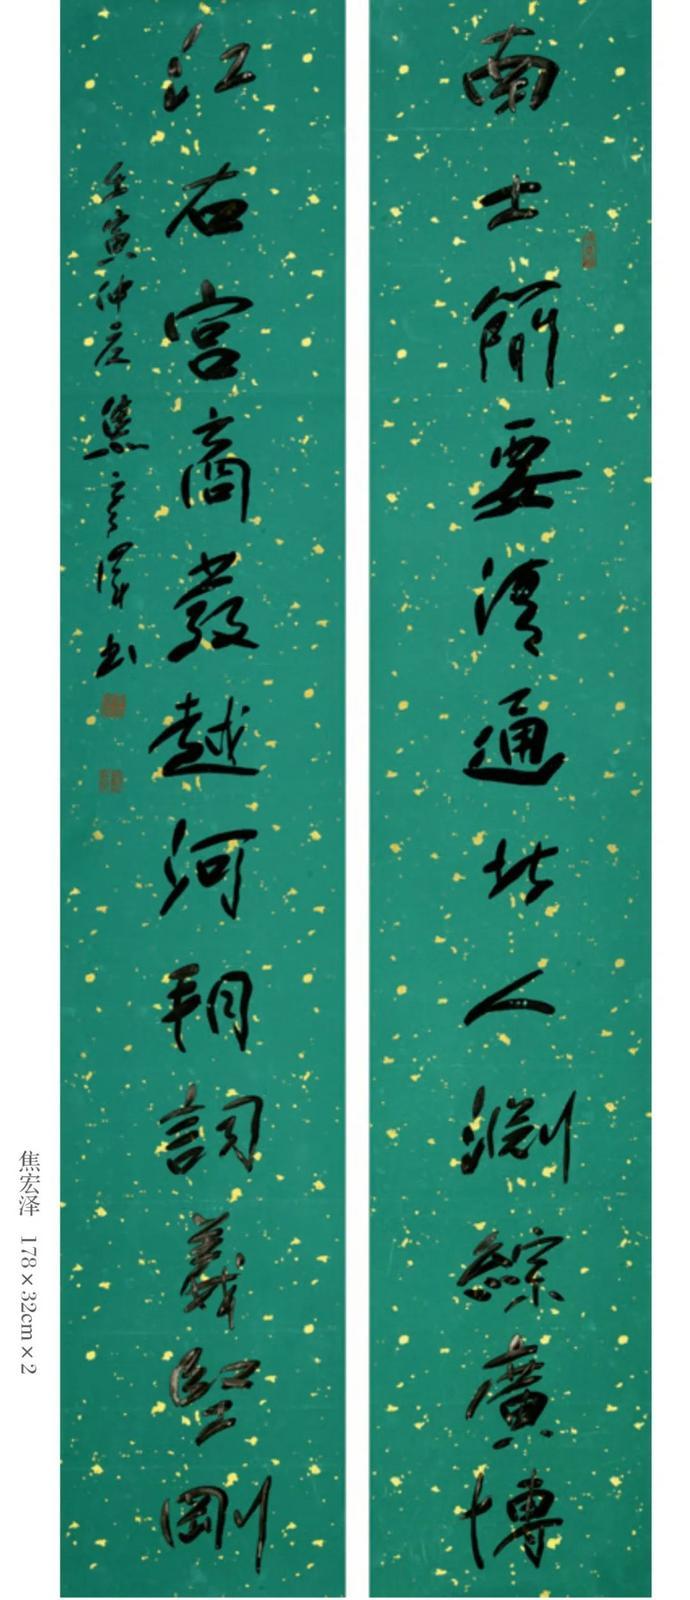 南士簡要清通北人淵綜廣博
江右宮商發越河朔詞義堅剛
壬寅仲夏焦宏澤書
焦宏泽 178×32cm×2